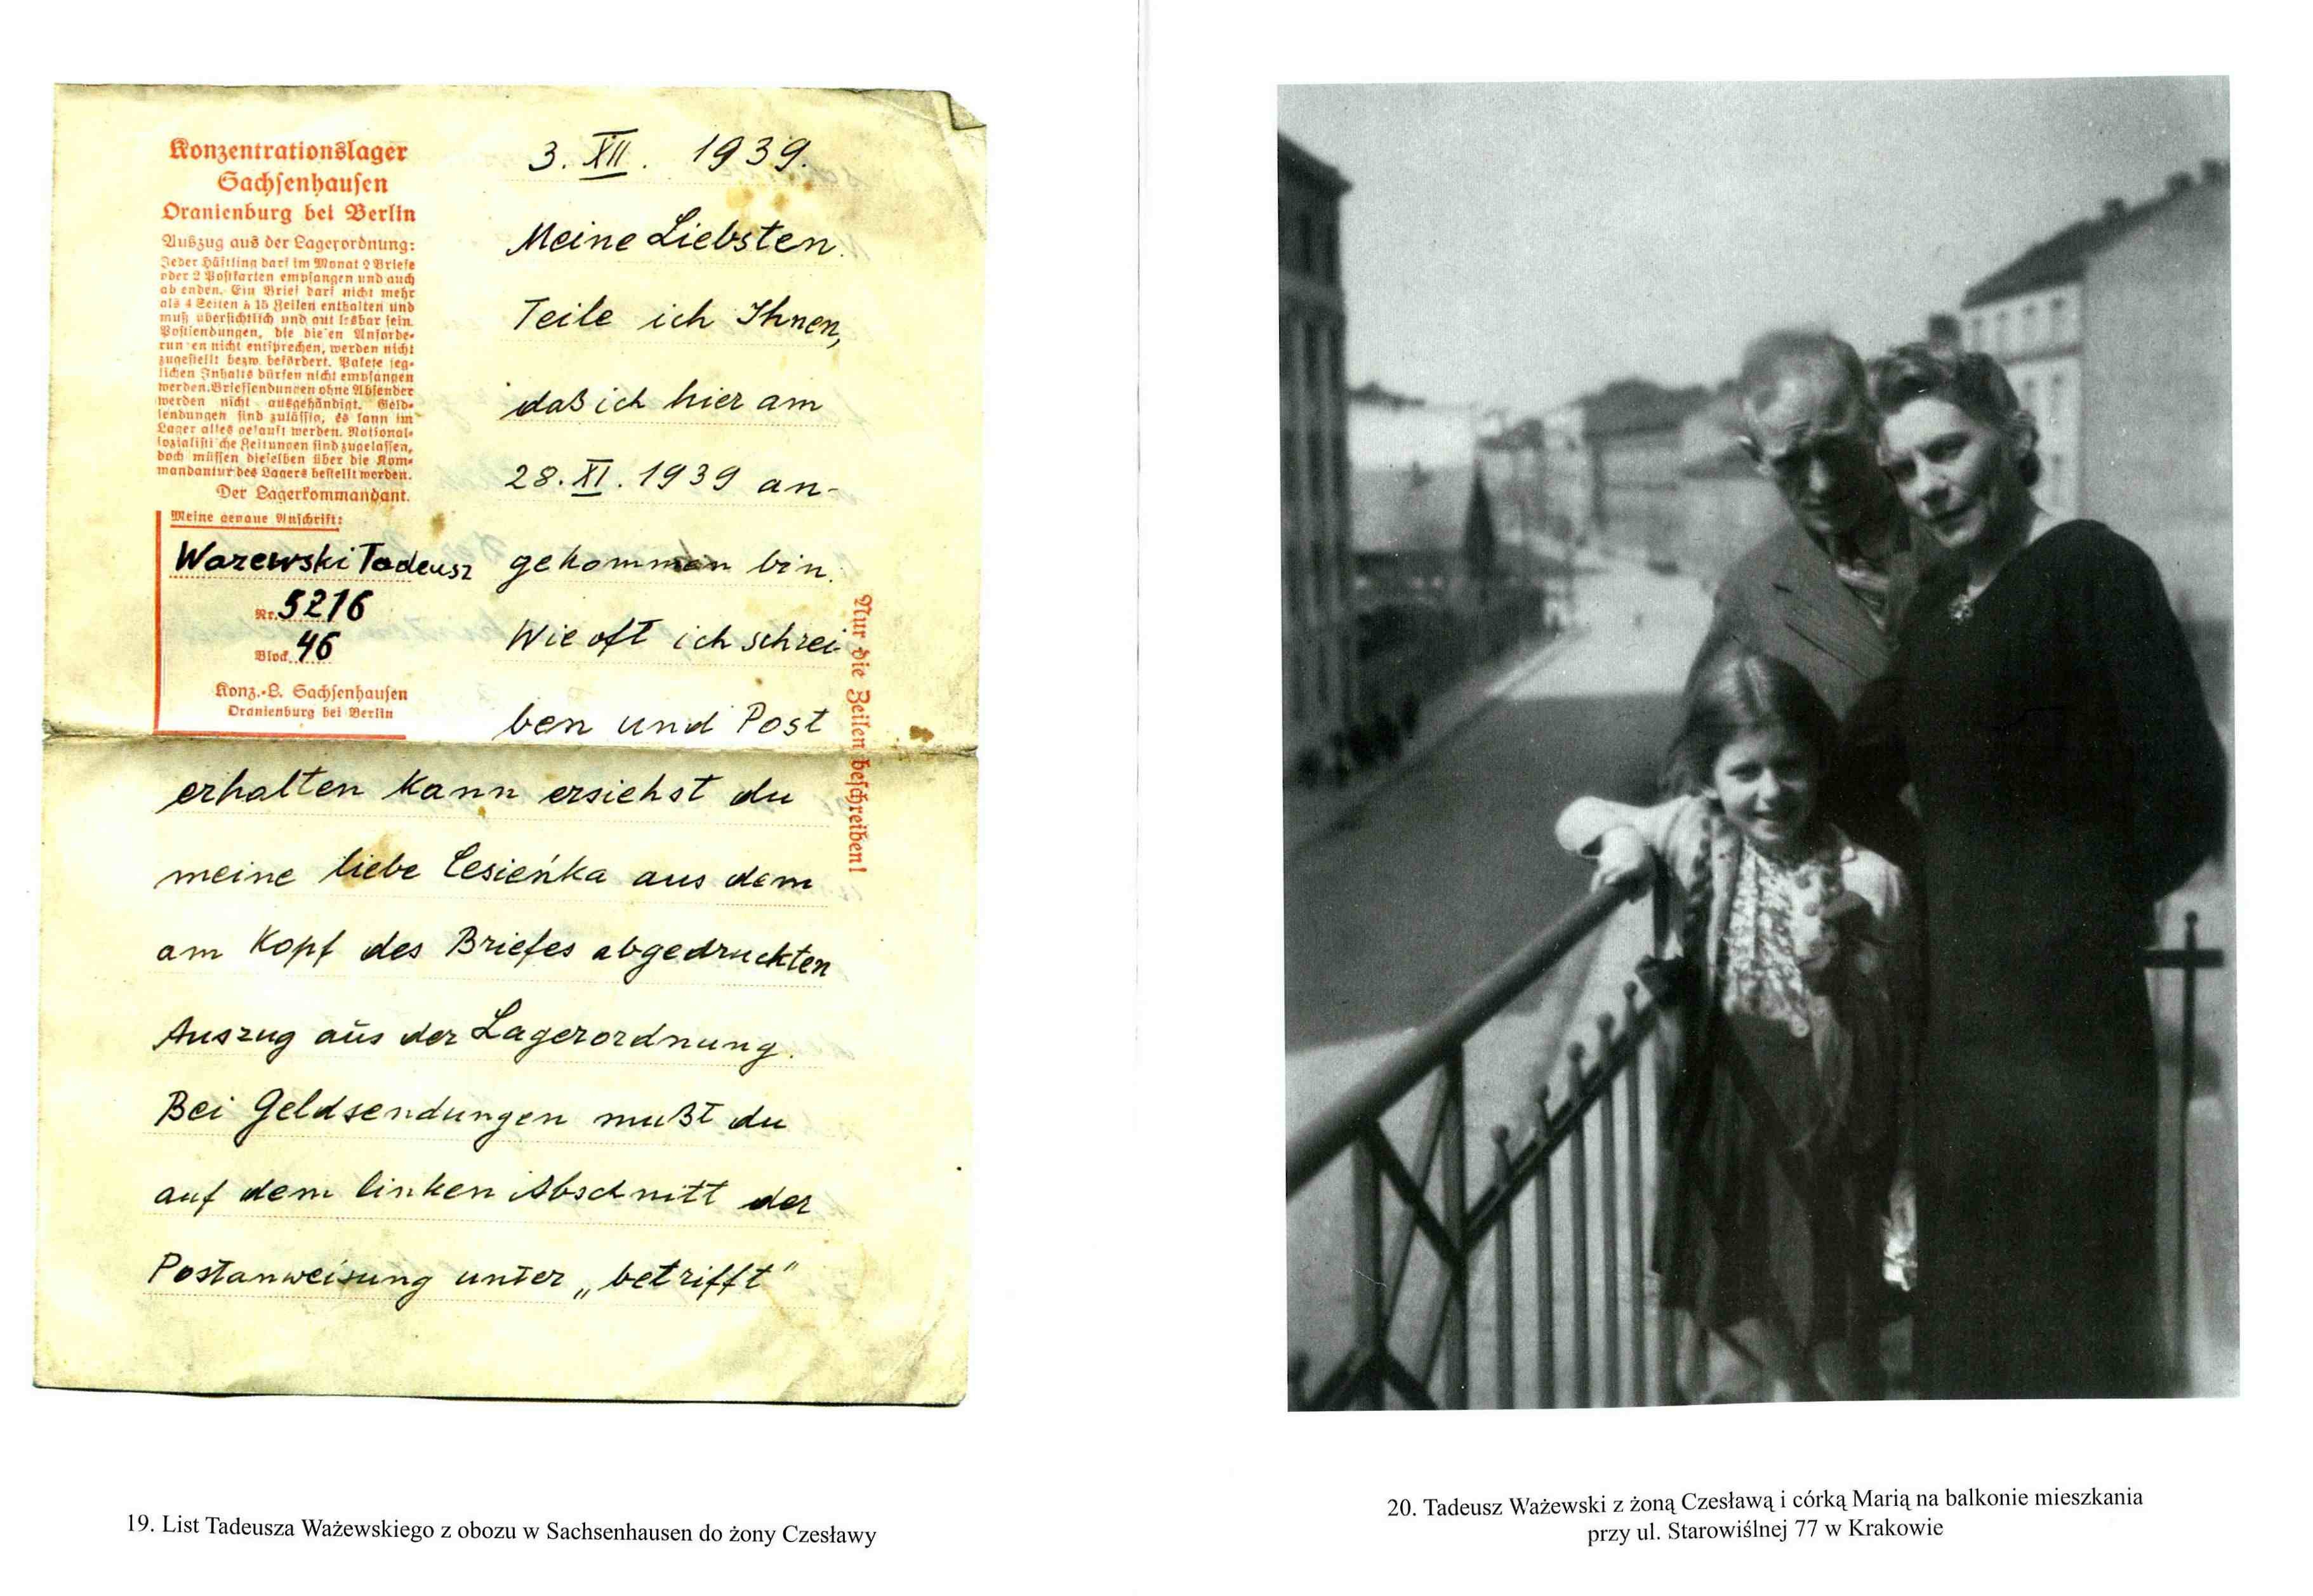 Konzentrationslager
Sachsenhausen
Oranienburg bei Berlin
Auszug aus der Lagerordnung:
Jeder Häftling darf im Monat 2 Briefe
oder 2 Postkarten empfangen und auch
ab enden. Ein Brief darf nicht mehr
als 4 Seiten à 15 Zeilen enthalten und
muß übersichtlich und gut lesbar sein.
Postsendungen, die die en Anforde-
run en nicht entsprechen, werden nicht
zugestellt bezw. befördert. Pakete jeg-
lichen Inhalts dürfen nicht empfangen
werden. Briefsendungen ohne Absender
werden nicht ausgehändigt. Geld-
sendungen sind zulässig, es kann im
Lager alles gekauft werden. National-
sozialisti che Zeitungen sind zugelassen,
doch müssen dieselben über die Kom-
mandantur des Lagers bestellt werden.
Der Lagerkommandant.
Meine genaue Anschrift:
Wazewski Tadeusz
Nr. 5216
Block 46
Konz.-L. Sachsenhausen
Oranienburg bei Berlin
3. XII. 1939.
Meine Liebsten.
Teile ich Ihnen,
daß ich hier am
28. XI. 1939 an-
gekommen bin.
Wie oft ich schrei-
ben und Post
Nur die Zeilen beschreiben!
erhalten kann ersiehst du
meine liebe Cesieńka aus dem
am Kopf des Briefes abgedruckten
Auszug aus der Lagerordnung.
Bei Geldsendungen mußt du
auf dem linken Abschnitt der
Postanweisung unter „betrifft"
19. List Tadeusza Ważewskiego z obozu w Sachsenhausen do żony Czesławy
20. Tadeusz Ważewski z żoną Czesławą i córką Marią na balkonie mieszkania
przy ul. Starowiślnej 77 w Krakowie